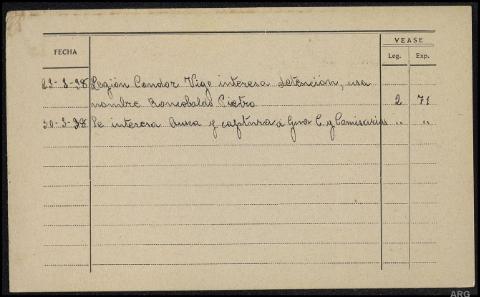 FECHA
VEASE
Leg. Exp.
23-3-38 Legión Condor Vigo interesa detencion, usa
nombre Roncobaldo Pietro 2 71
30-3-38 Se interesa busca y captura a Gna C. y Comisarias " "
ARG